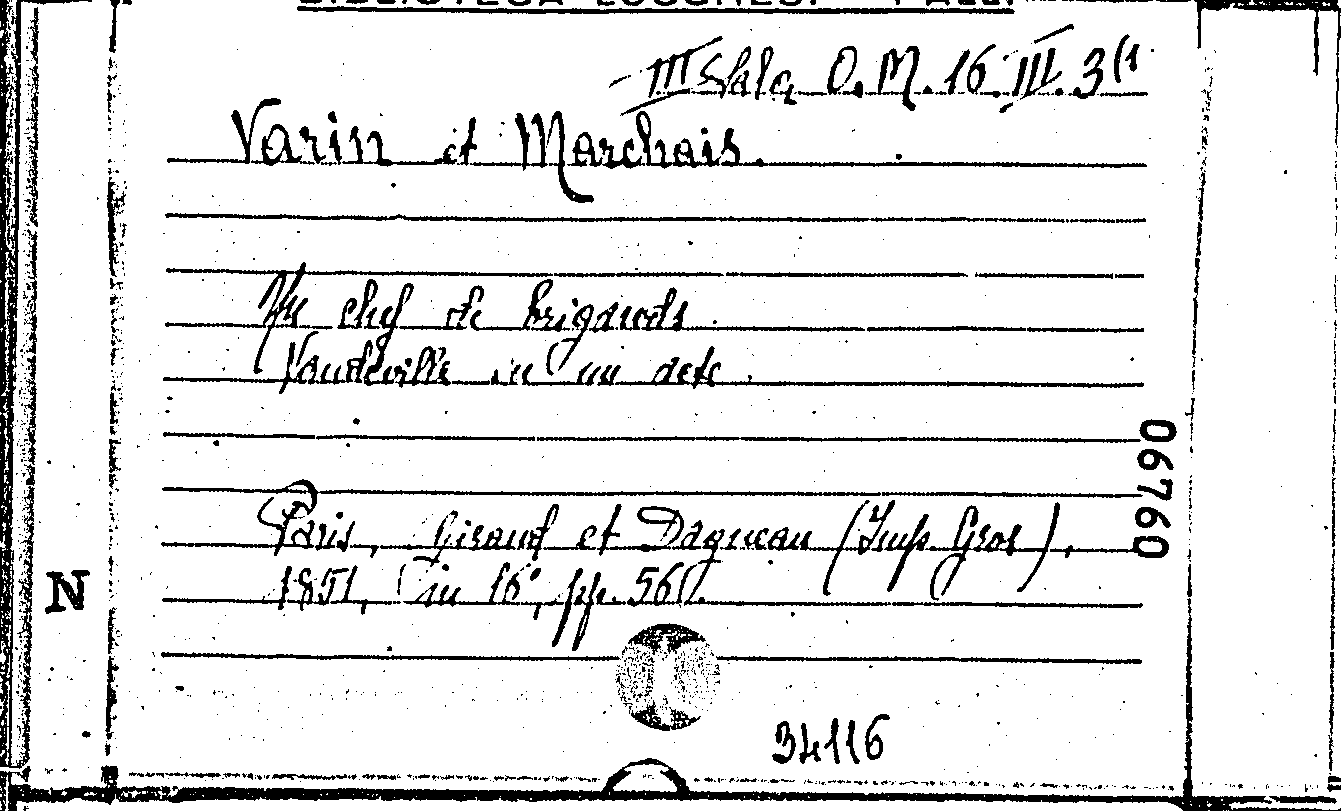 BIBLIOTECA LUCCHESI - PALLI
III Sala O. M. 16. III. 3(1
Varin et Marchais.
Un chef de brigands.
Vaudeville en un acte.
06760
Paris, Giraud et Dagneau (Imp. Gros),
1851, in 16°, pp. 56.
N
34116